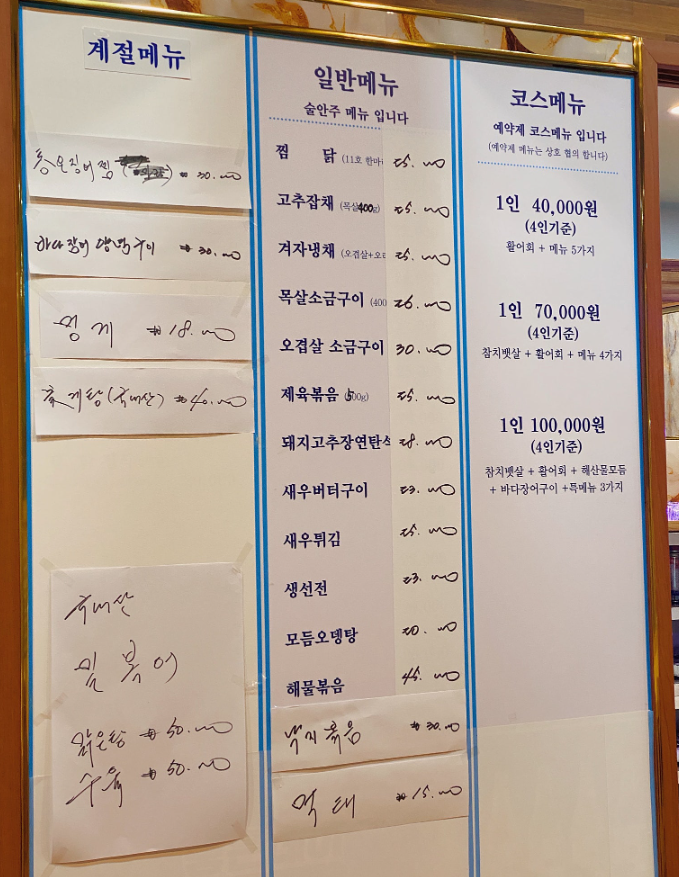 계절메뉴
통오징어찜 ₩30.00
바다장어 양념구이 ₩30.00
멍게 ₩18.00
꽃게탕(국내산) ₩40.00
국내산
밀복어
맑은탕 ₩50.00
수육 ₩50.00
일반메뉴
술안주 메뉴 입니다
찜 닭 (11호 한마 25.00
고추잡채 (목살400g) 25.00
겨자냉채 (오겹살+오 25.00
목살소금구이 (400 26.00
오겹살 소금구이 30.00
제육볶음 (500g) 25.00
돼지고추장연탄석 28.00
새우버터구이 23.00
새우튀김 25.00
생선전 23.00
모듬오뎅탕 20.00
해물볶음 45.00
낙지볶음 ₩30.00
먹태 ₩15.00
코스메뉴
예약제 코스메뉴 입니다
(예약제 메뉴는 상호 협의 합니다)
1인 40,000원
(4인기준)
활어회 + 메뉴 5가지
1인 70,000원
(4인기준)
참치뱃살 + 활어회 + 메뉴 4가지
1인 100,000원
(4인기준)
참치뱃살 + 활어회 + 해산물모듬
+ 바다장어구이 +특메뉴 3가지